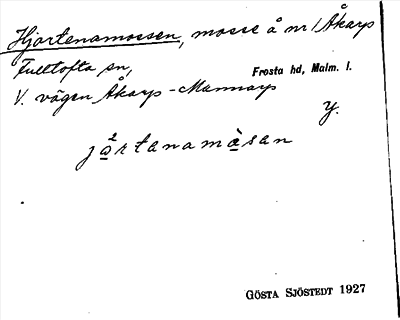 Hjortenamossen, mosse å nr 1 Åkarp
Fulltofta sn,
Frosta hd, Malm. l.
V. vägen Åkarp-Mannarp
Y.
jo²rtanamòsan
GÖSTA SJÖSTEDT 1927